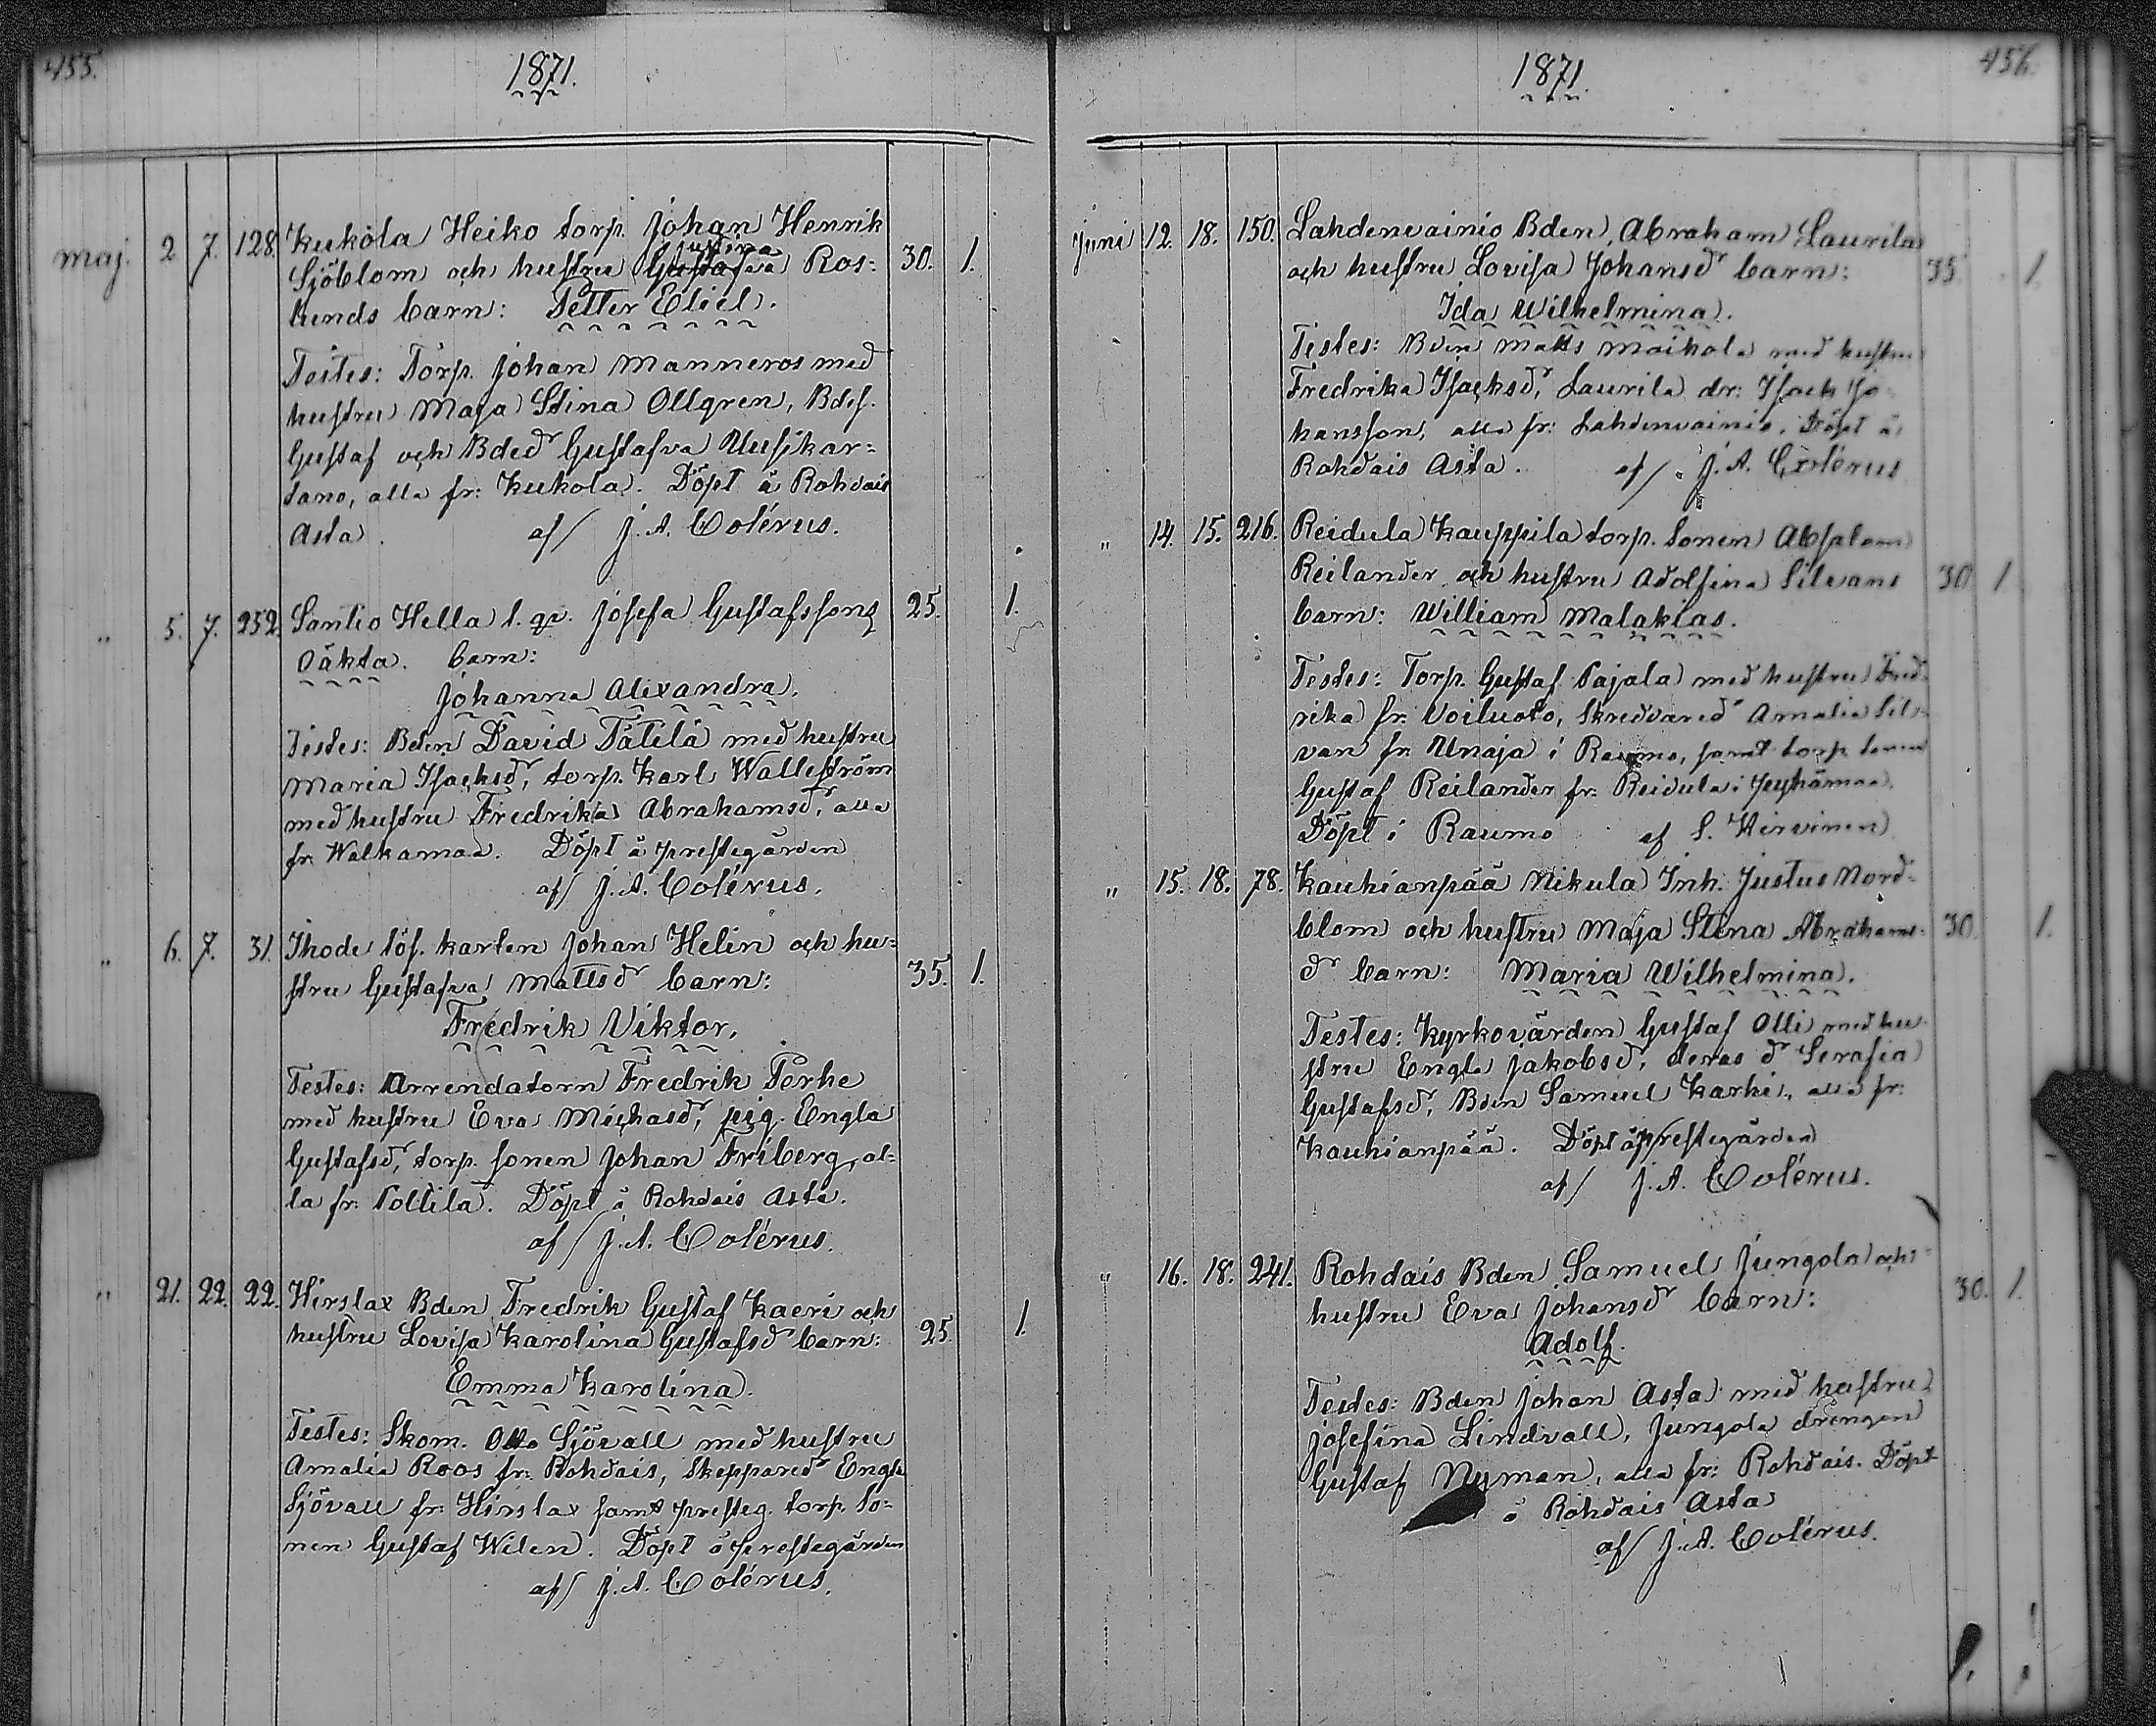 455.
1871.
maj. 2 7. 128. Kukola Heiko torp. Johan Henrik
Justina
Sjöblom och hustru Gustafva Ros= 30. 1.
lunds barn: Petter Eliel.
Testes: Torp. Johan Manneros med
hustru Maja Stina Ollgren, Bdes.
Gustaf och Bdedr Gustafva Uusikar=
tano, alla fr: Kukola. Döpt å Rohdais
Asta. af J. A. Colérus.
„ 5. 7. 252. Santio Hella l. qv. Josefa Gustafssons 25. 1.
Oäkta. barn:
Johanna Alexandra.
Testes: Bden David Tätilä med hustru
Maria Isachsdr, torp. Karl Walleström
med hustru Fredrika Abrahamsdr, alla
fr. Walkamaa. Döpt å prestegården
af J. A. Colérus.
„ 6. 7. 31. Ihode lös. karlen Johan Helin och hu=
stru Gustafva Mattsdr barn: 35. 1.
Fredrik Viktor.
Testes: Arrendatorn Fredrik Perhe
med hustru Eva Michasdr, pig. Engla
Gustafsdr, torp. sonen Johan Friberg, al=
la fr: Polttila. Döpt å Rohdais Asta.
af J. A. Colérus.
„ 21. 22. 22. Hirslax Bden Fredrik Gustaf Kaeri och
hustru Lovisa Karolina Gustafsdr barn: 25. 1.
Emma Karolina.
Testes: Skom. Otto Sjövall med hustru
Amalia Roos fr: Rohdais, Skeppardr Engla
Sjövall fr: Hirslax samt presteg. torp. so=
nen Gustaf Wilen. Döpt å prestegården
af J. A. Colérus.
456.
1871.
Juni 12. 18. 150. Lahdenvainio Bden, Abraham Laurila
och hustru Lovisa Johansdr barn: 35. 1.
Ida Wilhelmina.
Testes: Bden Matts Maikola med hustru
Fredrika Isachsdr, Laurila dr: Isach Jo=
hansson, alla fr: Lahdenvainio. Döpt å
Rohdais Asta. af J. A. Colérus
„ 14. 15. 216. Reidula Kauppila torp. sonen Absalom
Reilander och hustru Adolfina Silvans 30 1
barn: William Malakias.
Testes: Torp. Gustaf Pajala med hustru Fred=
rika fr. Voiluoto, Skredvaredr Amalia Sil=
van fr. Unaja i Raumo, samt torp. sonen
Gustaf Reilander fr. Reidula i Pyhämaa.
Döpt i Raumo af S. Hirvinen
„ 15. 18. 78. Kauhianpää Nikula Inh. Justus Nord=
blom och hustru Maja Stina Abrahams= 30. 1.
dr barn: Maria Wilhelmina.
Testes: Kyrkovärden Gustaf Olli med hu=
stru Engla Jakobsdr, deras dr Serafia
Gustafsdr, Bden Samuel Karhi, alla fr:
Kauhianpää. Döpt å prestegården
af J. A. Colérus.
„ 16. 18. 241. Rohdais Bden Samuel Jungola och
hustru Eva Johansdr barn: 30. 1.
Adolf.
Testes: Bden Johan Asta med hustru
Josefina Lindvall, Jungola drengen
Gustaf Nyman, alla fr: Rohdais. Döpt
å Rohdais Asta
af J. A. Colérus.